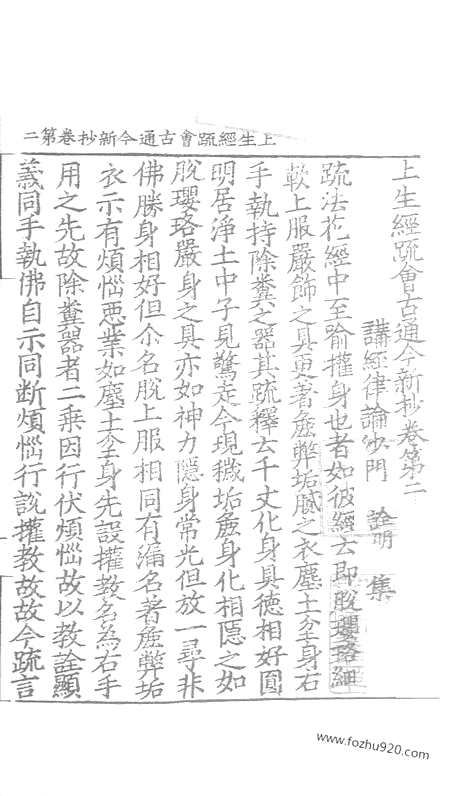 上生經䟽會古通今新抄卷第二
上生經䟽會古通今新抄卷第二
講經律論沙門　詮明　集
䟽法花經中至喻權身也者如彼經云即脫瓔珞細
軟上服嚴飾之具更著麁弊垢膩之衣塵土坌身右
手執持除糞之器其䟽釋云千丈化身具德相好圓
明居淨土中子見驚走今現穢垢麁身化相隱之如
脫瓔珞嚴身之具亦如神力隱身常光但放一尋非
佛勝身相好但尒名脫上服相同有漏名著麁弊垢
衣示有煩惱惡業如塵土坌身先設權教名為右手
用之先故除糞器者二乘因行伏煩惱故以教詮顯
義同手執佛自示同斷煩惱行說權教故故今䟽言
www.fozhu920.com